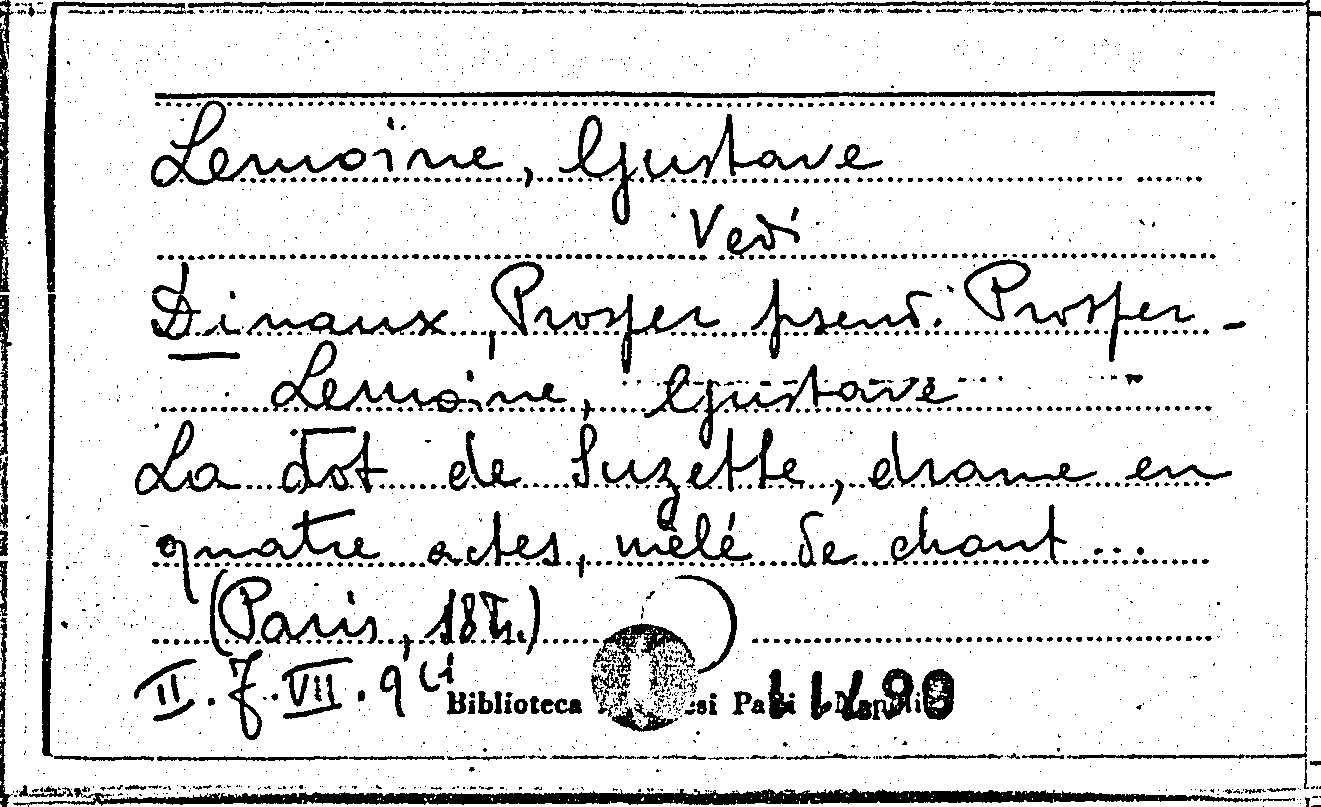 Lemoine, Gustave
Vedi
Dinaux, Prosper pseud. Prosper -
Lemoine, Gustave
La dot de Suzette, drame en
quatre actes, mêlé de chant ...
(Paris, 18..)
II. J. VII. 9 (1
Biblioteca